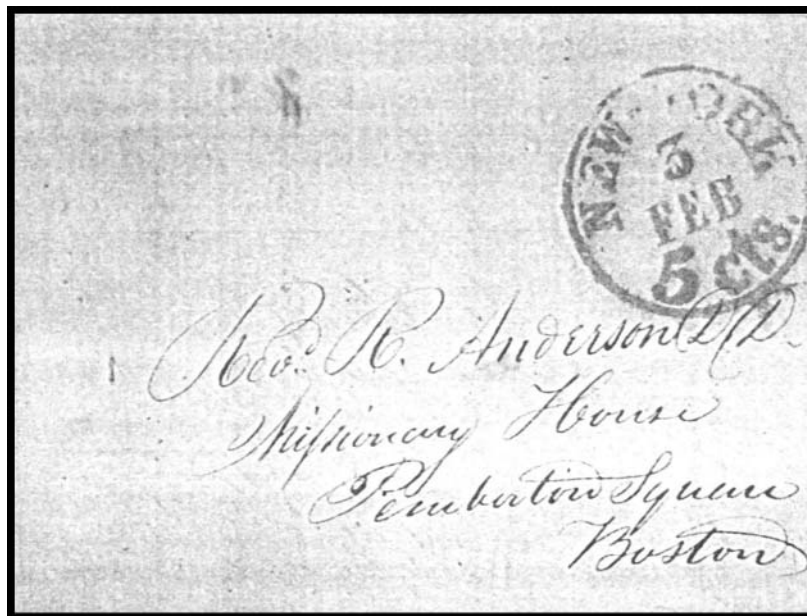 NEW-YORK
5
FEB
5 cts.
Revd. R. Anderson D.D.
Missionary House
Pemberton Square
Boston